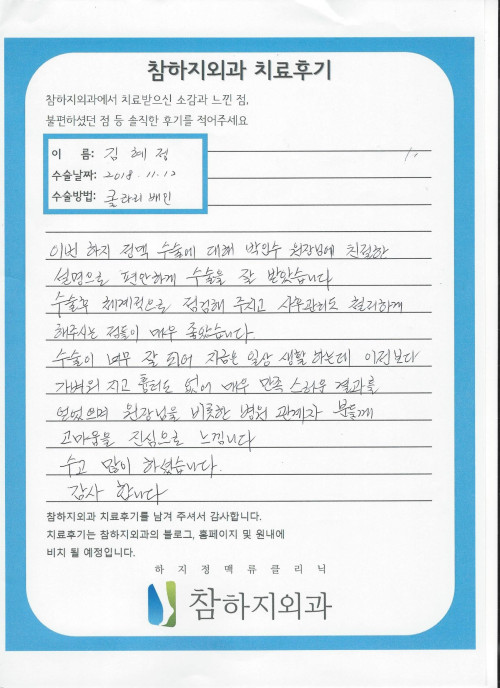 참하지외과 치료후기
참하지외과에서 치료받으신 소감과 느낀 점,
불편하셨던 점 등 솔직한 후기를 적어주세요
이 름: 김혜정
수술날짜: 2018.11.12
수술방법: 클라리베인
이번 하지 정맥 수술에 대해 박인수 원장님에 친절한
설명으로 편안하게 수술을 잘 받았습니다
수술후 체계적으로 점검해 주시고 사후관리도 철저하게
해주시는 점들이 매우 좋았습니다.
수술이 너무 잘 되어 지금은 일상 생활 하는데 이전보다
가벼워 지고 흉터도 없어 매우 만족 스러운 결과를
얻었으며 원장님을 비롯한 병원 관계자 분들께
고마움을 진심으로 느낍니다
수고 많이 하셨습니다.
감사 합니다
참하지외과 치료후기를 남겨 주셔서 감사합니다.
치료후기는 참하지외과의 블로그, 홈페이지 및 원내에
비치 될 예정입니다.
하지정맥류클리닉
참하지외과